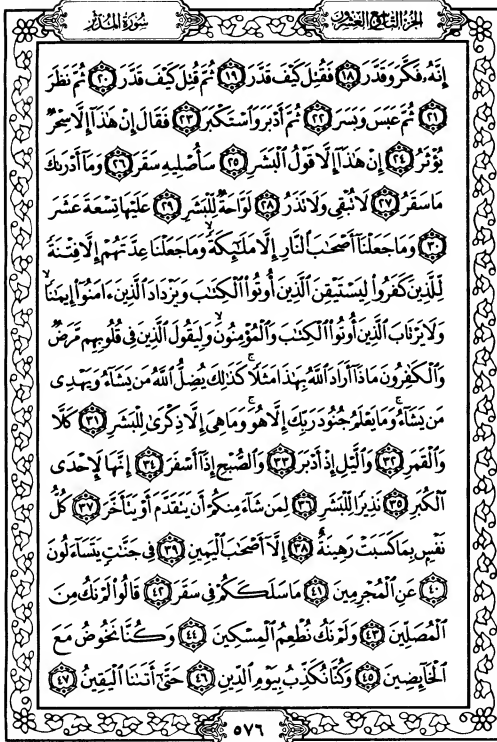 سورة المدثر الجزء التاسع والعشرون
إِنَّهُۥ فَكَّرَ وَقَدَّرَ ١٨ فَقُتِلَ كَيْفَ قَدَّرَ ١٩ ثُمَّ قُتِلَ كَيْفَ قَدَّرَ ٢٠ ثُمَّ نَظَرَ
٢١ ثُمَّ عَبَسَ وَبَسَرَ ٢٢ ثُمَّ أَدْبَرَ وَٱسْتَكْبَرَ ٢٣ فَقَالَ إِنْ هَٰذَآ إِلَّا سِحْرٌ
يُؤْثَرُ ٢٤ إِنْ هَٰذَآ إِلَّا قَوْلُ ٱلْبَشَرِ ٢٥ سَأُصْلِيهِ سَقَرَ ٢٦ وَمَآ أَدْرَىٰكَ
مَا سَقَرُ ٢٧ لَا تُبْقِى وَلَا تَذَرُ ٢٨ لَوَّاحَةٌ لِّلْبَشَرِ ٢٩ عَلَيْهَا تِسْعَةَ عَشَرَ
٣٠ وَمَا جَعَلْنَآ أَصْحَٰبَ ٱلنَّارِ إِلَّا مَلَٰٓئِكَةً ۙ وَمَا جَعَلْنَا عِدَّتَهُمْ إِلَّا فِتْنَةً
لِّلَّذِينَ كَفَرُوا۟ لِيَسْتَيْقِنَ ٱلَّذِينَ أُوتُوا۟ ٱلْكِتَٰبَ وَيَزْدَادَ ٱلَّذِينَ ءَامَنُوٓا۟ إِيمَٰنًا ۙ
وَلَا يَرْتَابَ ٱلَّذِينَ أُوتُوا۟ ٱلْكِتَٰبَ وَٱلْمُؤْمِنُونَ ۙ وَلِيَقُولَ ٱلَّذِينَ فِى قُلُوبِهِم مَّرَضٌ
وَٱلْكَٰفِرُونَ مَاذَآ أَرَادَ ٱللَّهُ بِهَٰذَا مَثَلًا ۚ كَذَٰلِكَ يُضِلُّ ٱللَّهُ مَن يَشَآءُ وَيَهْدِى
مَن يَشَآءُ ۚ وَمَا يَعْلَمُ جُنُودَ رَبِّكَ إِلَّا هُوَ ۚ وَمَا هِىَ إِلَّا ذِكْرَىٰ لِلْبَشَرِ ٣١ كَلَّا
وَٱلْقَمَرِ ٣٢ وَٱلَّيْلِ إِذْ أَدْبَرَ ٣٣ وَٱلصُّبْحِ إِذَآ أَسْفَرَ ٣٤ إِنَّهَا لَإِحْدَى
ٱلْكُبَرِ ٣٥ نَذِيرًا لِّلْبَشَرِ ٣٦ لِمَن شَآءَ مِنكُمْ أَن يَتَقَدَّمَ أَوْ يَتَأَخَّرَ ٣٧ كُلُّ
نَفْسٍۭ بِمَا كَسَبَتْ رَهِينَةٌ ٣٨ إِلَّآ أَصْحَٰبَ ٱلْيَمِينِ ٣٩ فِى جَنَّٰتٍ يَتَسَآءَلُونَ
٤٠ عَنِ ٱلْمُجْرِمِينَ ٤١ مَا سَلَكَكُمْ فِى سَقَرَ ٤٢ قَالُوا۟ لَمْ نَكُ مِنَ
ٱلْمُصَلِّينَ ٤٣ وَلَمْ نَكُ نُطْعِمُ ٱلْمِسْكِينَ ٤٤ وَكُنَّا نَخُوضُ مَعَ
ٱلْخَآئِضِينَ ٤٥ وَكُنَّا نُكَذِّبُ بِيَوْمِ ٱلدِّينِ ٤٦ حَتَّىٰٓ أَتَىٰنَا ٱلْيَقِينُ ٤٧
٥٧٦